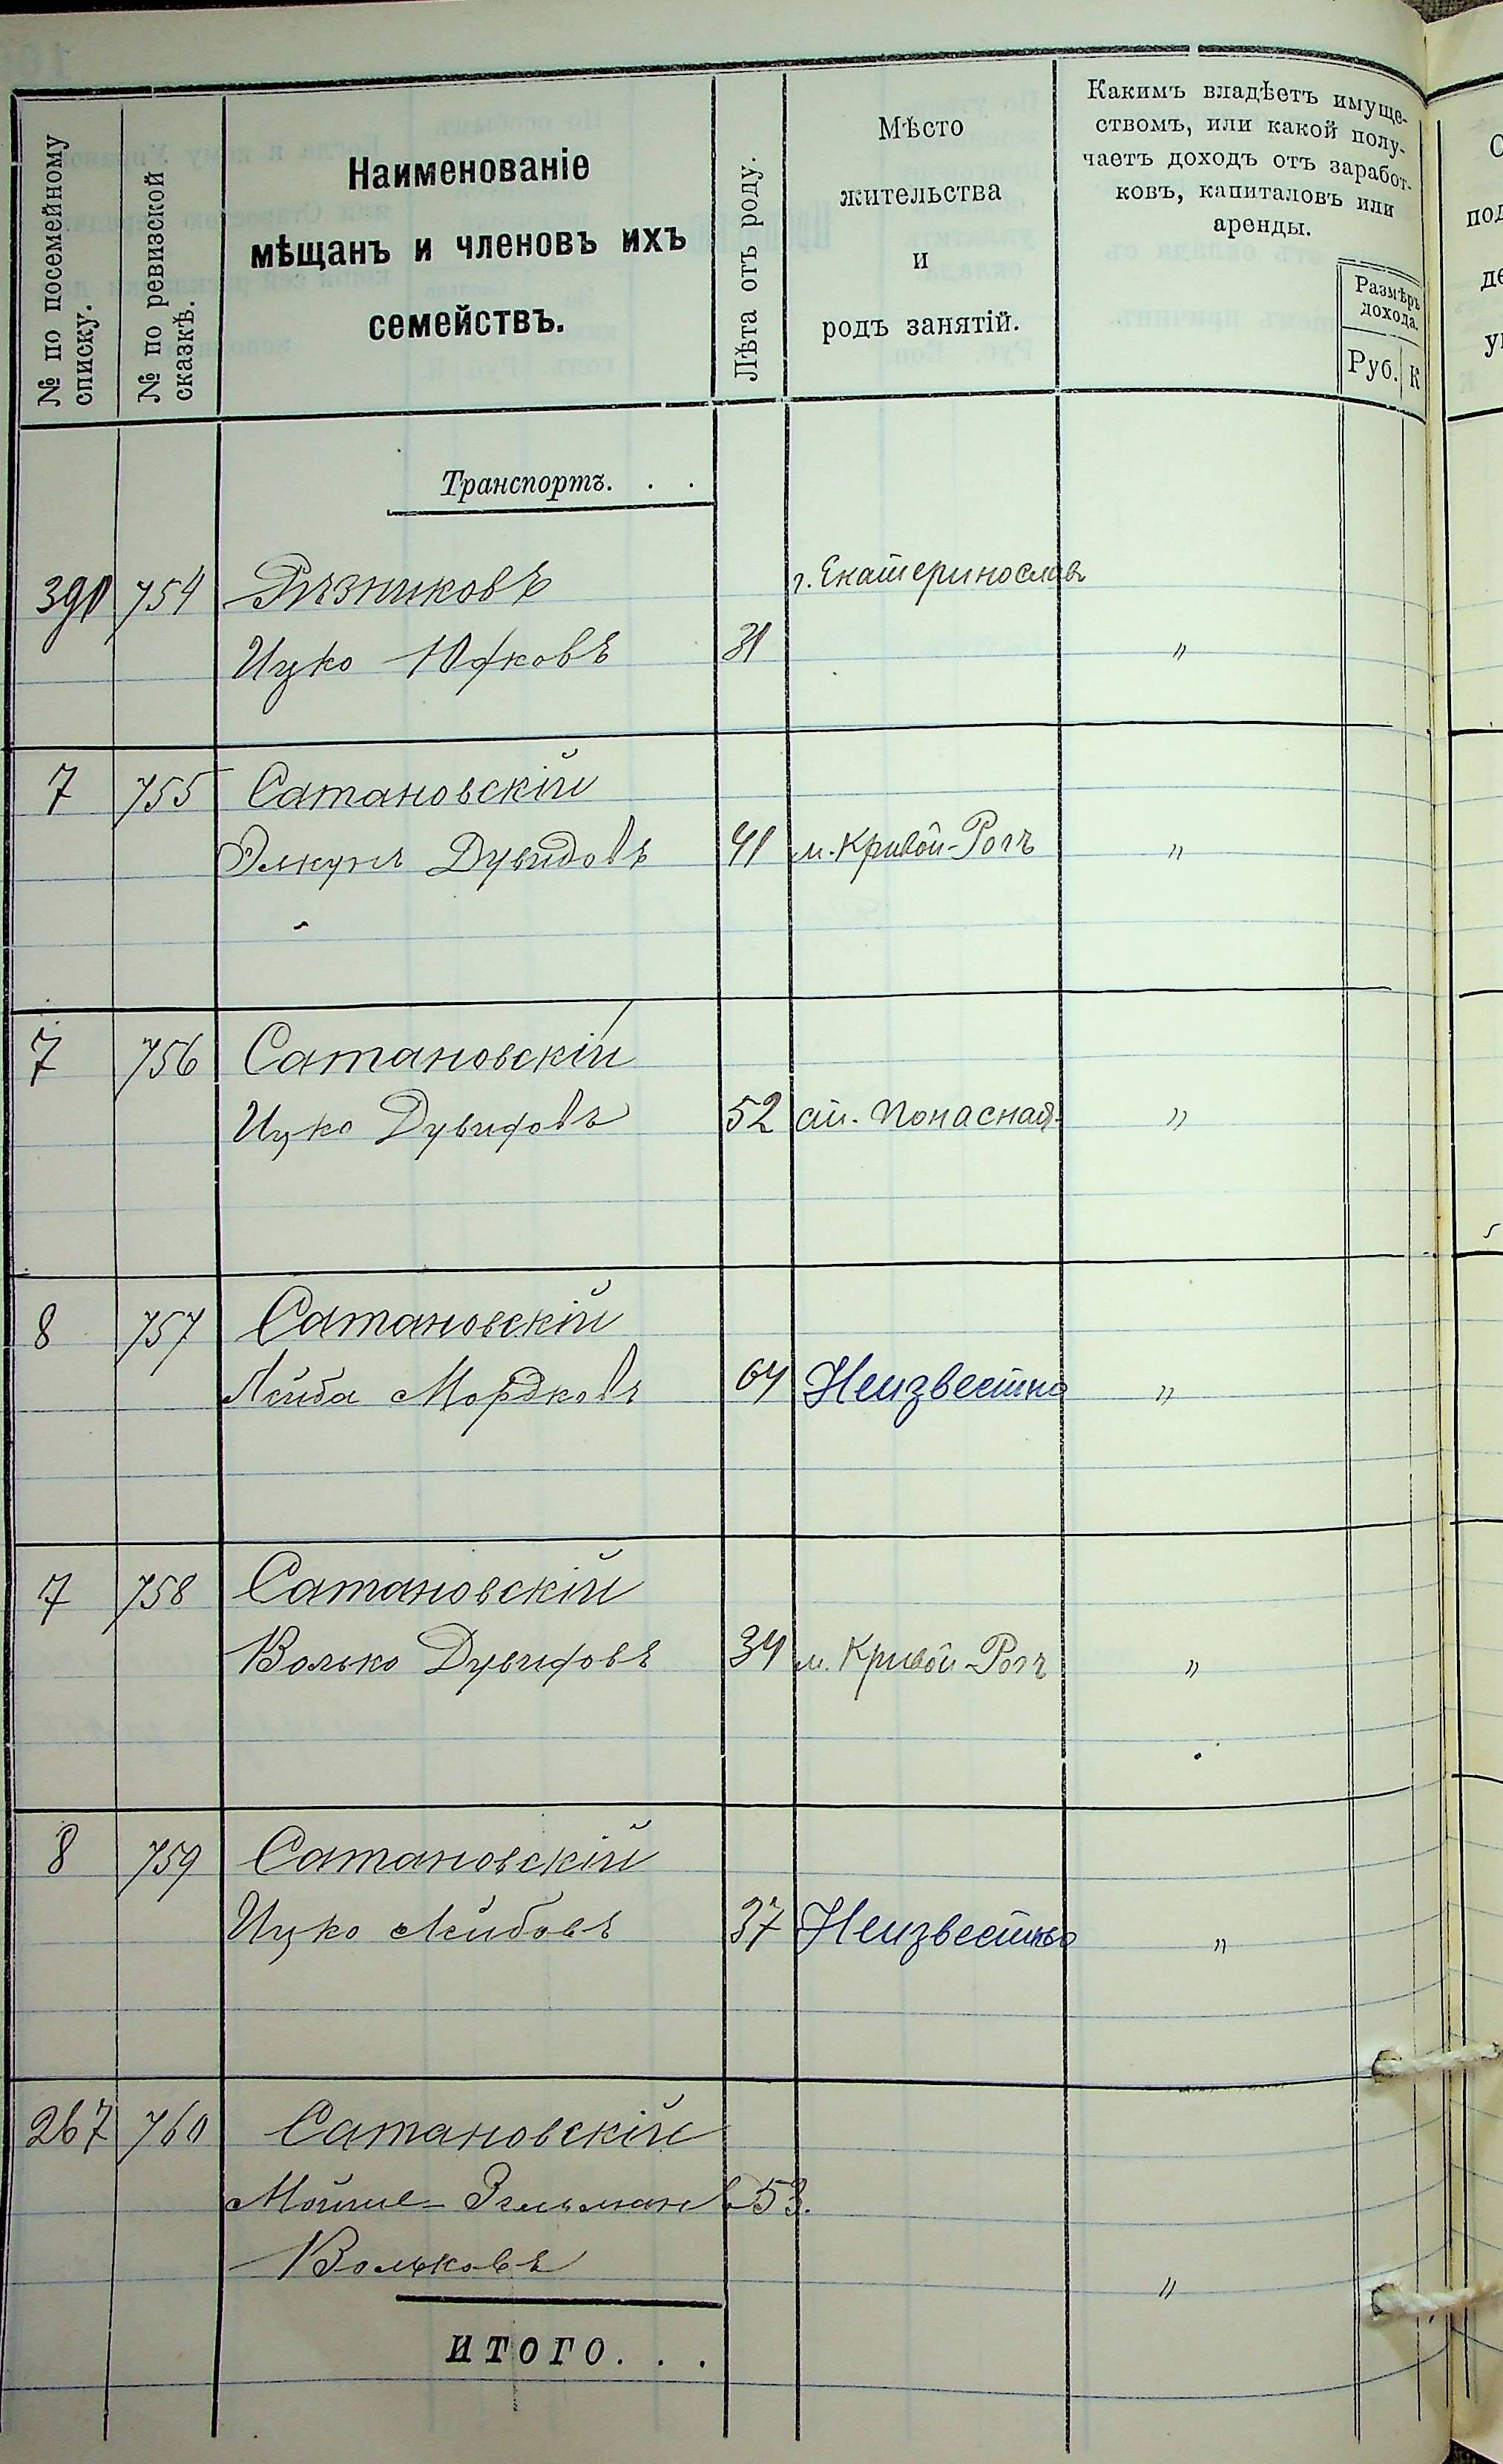 № по посемейному списку.
№ по ревизской сказкѣ.
Наименованіе
мѣщанъ и членовъ ихъ
семействъ.
Лѣта отъ роду.
Мѣсто
жительства
и
родъ занятій.
Какимъ владѣетъ имуще-
ствомъ, или какой полу-
чаетъ доходъ отъ заработ-
ковъ, капиталовъ или
аренды.
Размѣръ
дохода.
Руб. К
Транспортъ. . .
390 754 Рѣзниковъ г. Екатеринославъ
Ицко Юфковъ 31 "
7 755 Сатановскій
Элкунъ Дувидовъ 41 м. Кривой-Рогъ "
7 756 Сатановскій
Ицко Дувидовъ 52 ст. Попасная "
8 757 Сатановскій
Лейба Мордковъ 64 Неизвестно "
7 758 Сатановскій
Волько Дувидовъ 34 м. Кривой-Рогъ "
8 759 Сатановскій
Ицко Лейбовъ 37 Неизвестно "
267 760 Сатановскій
Мойше-Зельман 53.
Вольковъ "
ИТОГО. . .